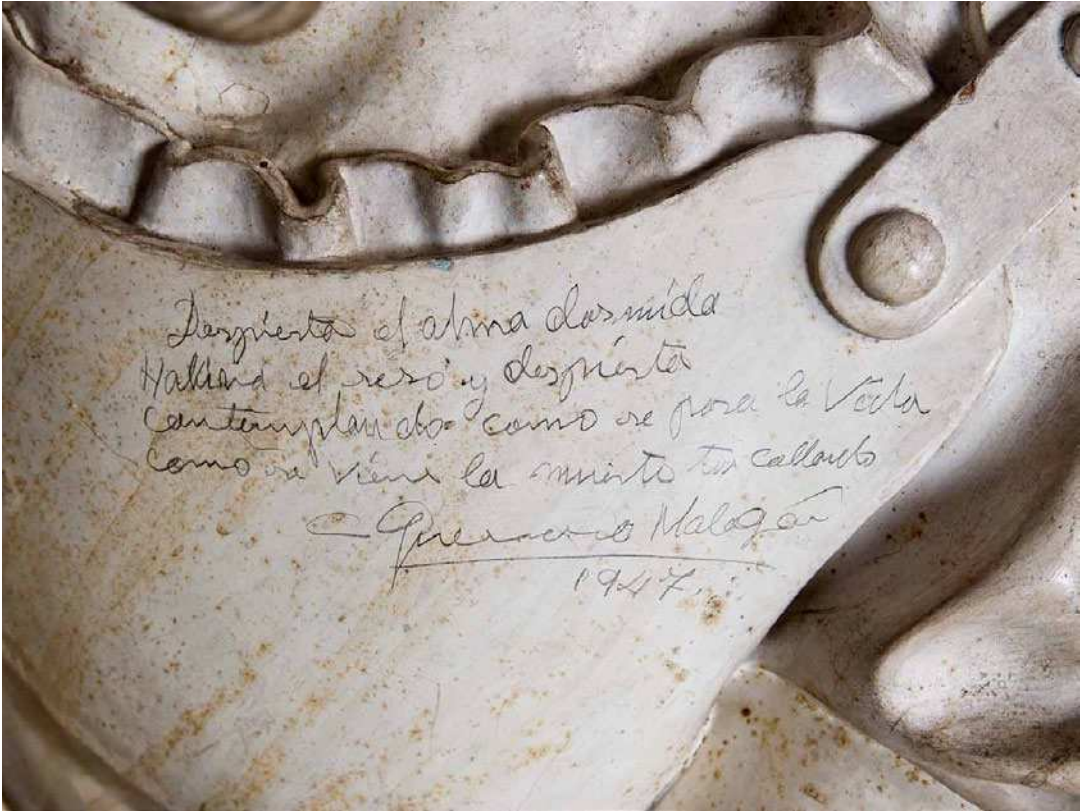 Despierta el alma dormida
el seso y despierta
contemplando como se pasa la Vida
como se viene la muerte tan callando
C Guerrero Malagón
1947.